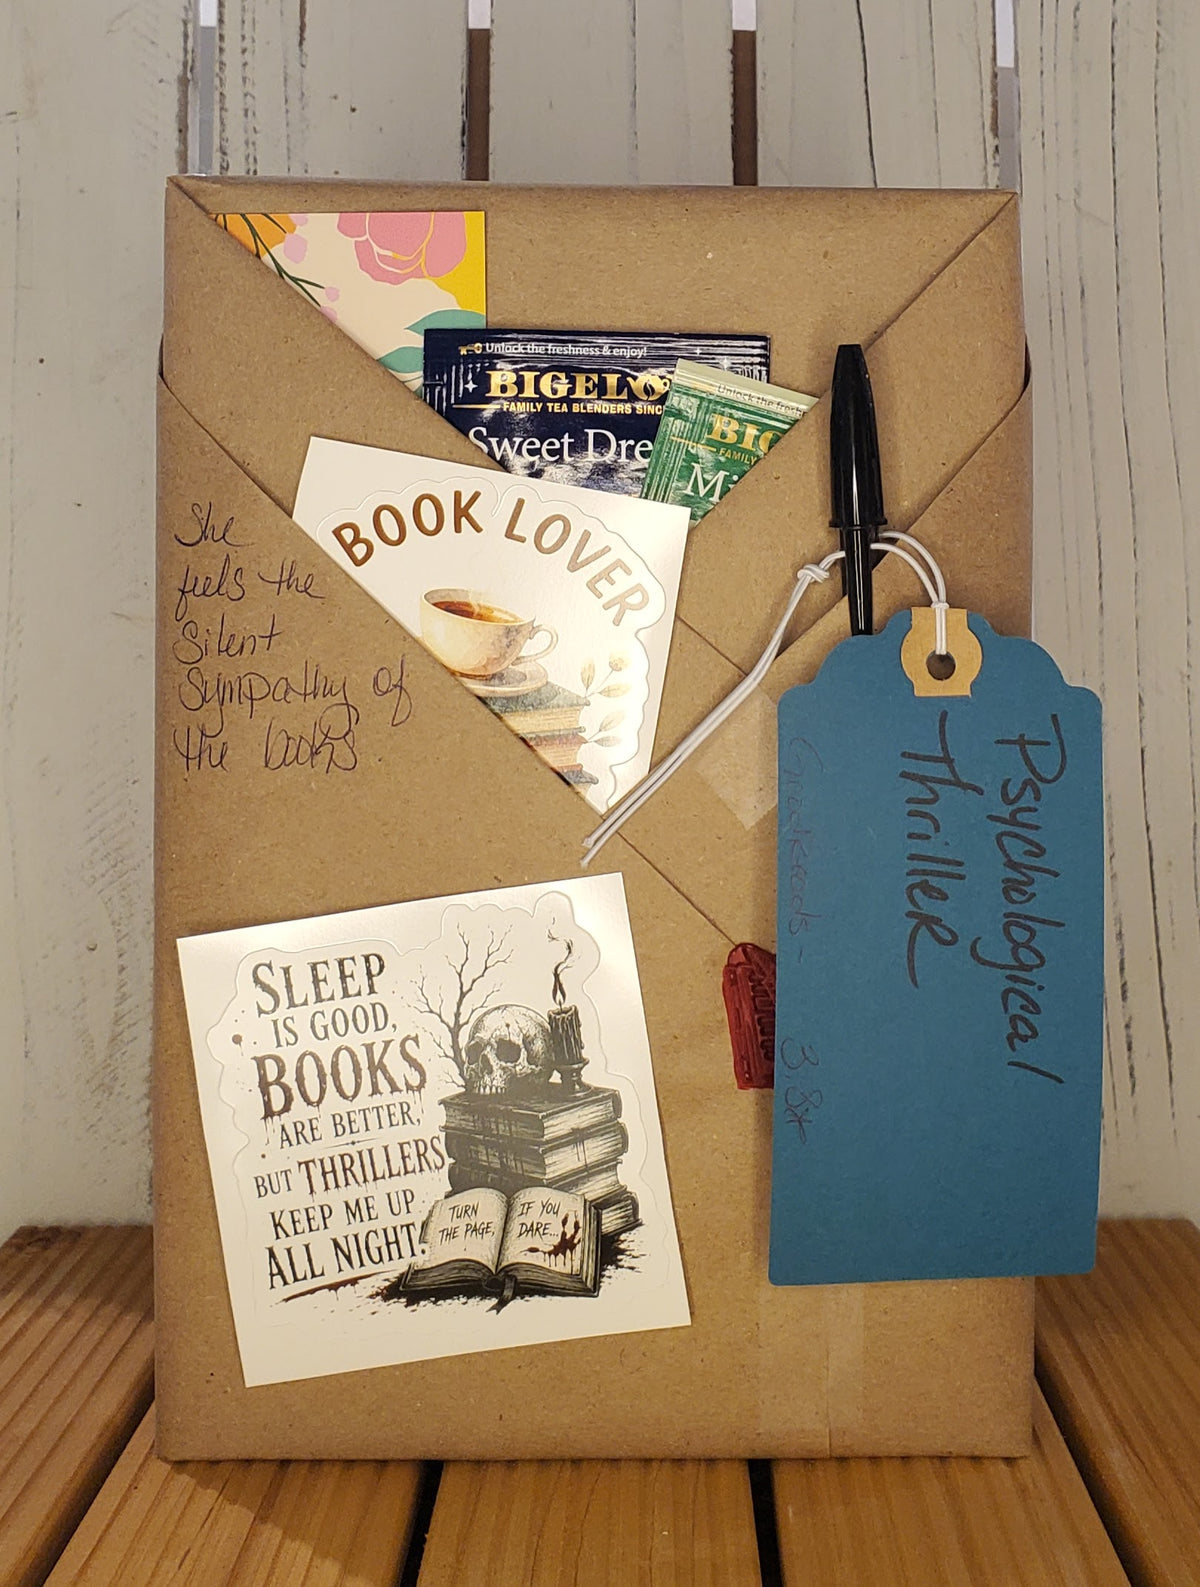 Unlock the freshness & enjoy!
BIGELO
FAMILY TEA BLENDERS SINC
Sweet Dre
Unlock the fresh
BIG
FAMILY
Mi
BOOK LOVER
She
feels the
Silent
Sympathy of
the books
Psychological
Thriller
Goodreads -
3.8*
SLEEP
IS GOOD,
BOOKS
ARE BETTER,
BUT THRILLERS
KEEP ME UP
ALL NIGHT!
TURN
THE PAGE,
IF YOU
DARE...